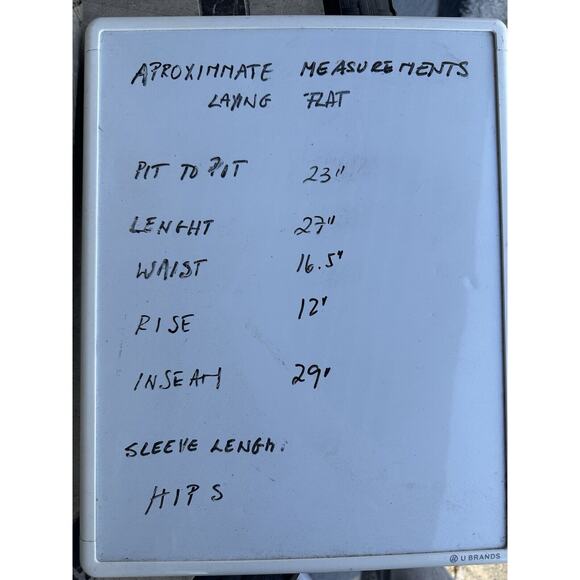 APROXIMMATE MEASUREMENTS
LAYING FLAT
PIT TO PIT 23"
LENGHT 27"
WAIST 16.5"
RISE 12"
INSEAM 29"
SLEEVE LENGH.
HIPS
U BRANDS